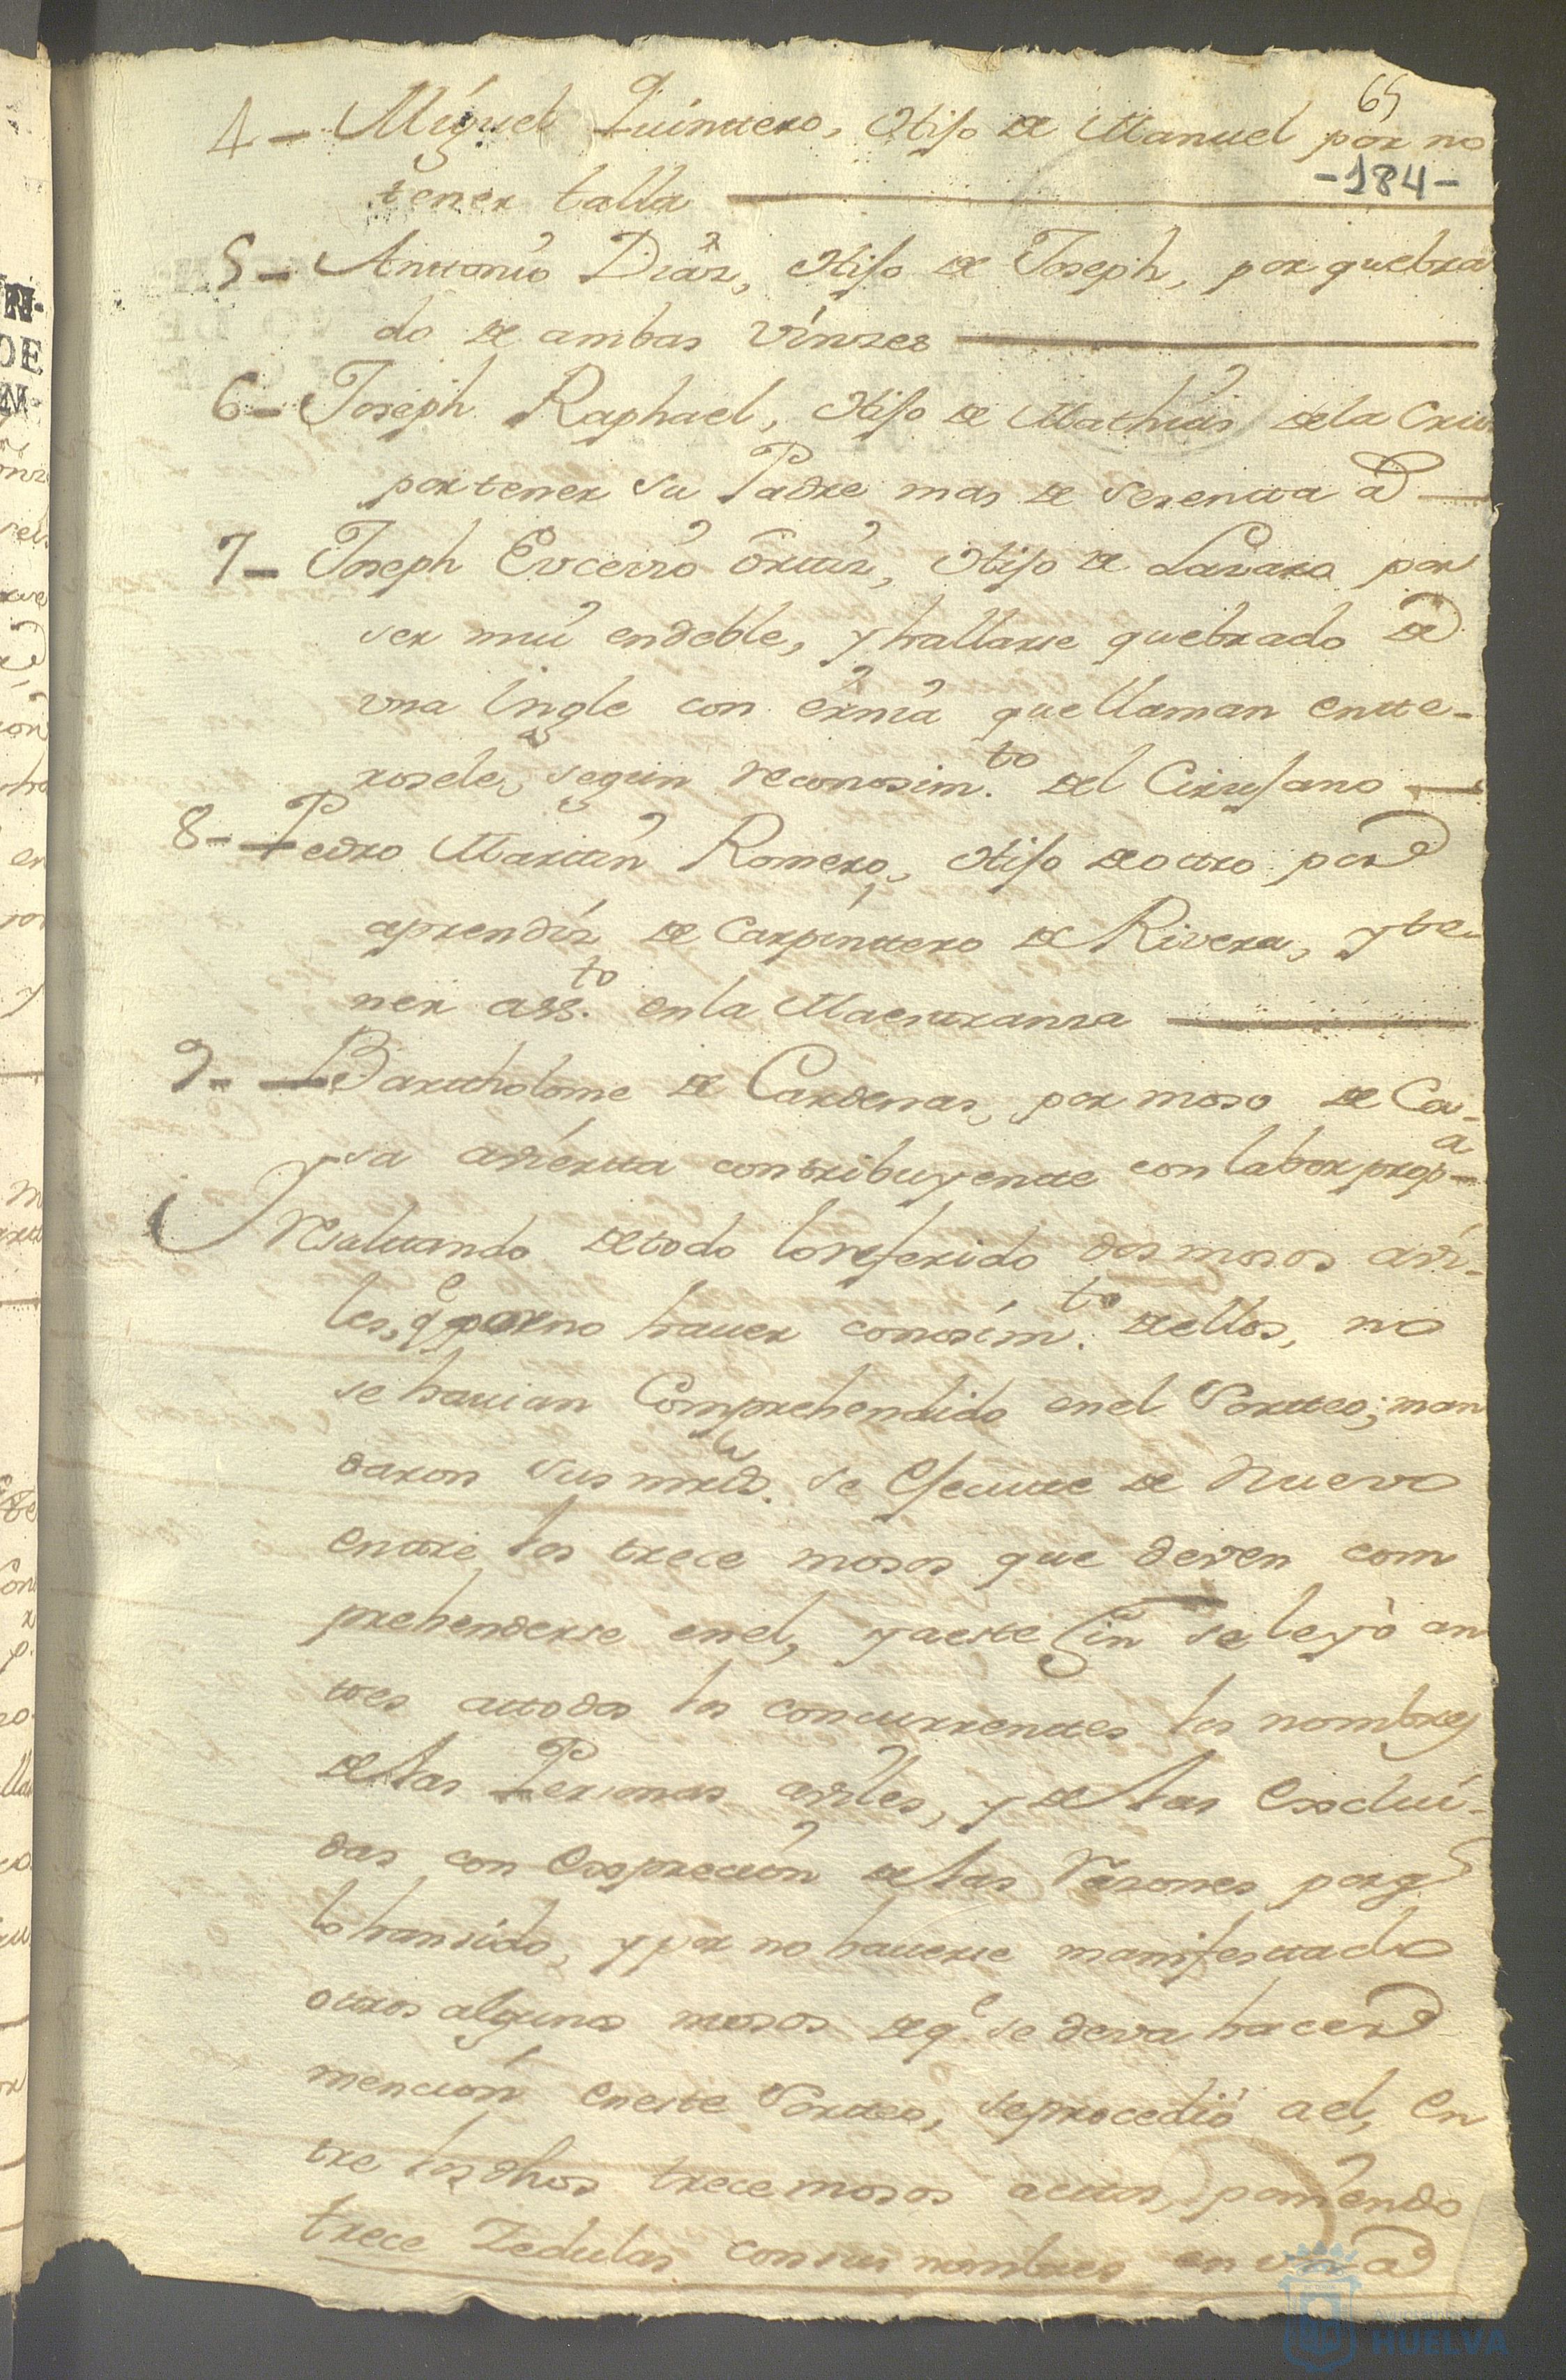 65
4 - Miguel Quinttero, Hijo de Manuel por no
-184-
tener talla
5 - Anttonio Diaz, Hijo de Joseph, por quebra
do de ambas Vinzes
6 - Joseph Raphael, Hijo de Mathias de la Cruz
por tener su Padre mas de sesentta a
7 - Joseph Eucevio Orttiz, Hijo de Lazaro por
ser mui endeble, y hallarse quebrado de
vna Ingle con érnia que llaman entte-
rosele, segun reconosim.to del Cirujano
8 - Pedro Marttin Romero, Hijo de ottro por
aprendiz de Carpinttero de Rivera, y te-
ner ass.to en la Maestranza
9 - Barttholome de Cardenas, por moso de Ca-
sa avierta contribuyentte con labor prop.a
Y Resulttando de todo lo referido dos mosos avi-
les, q.e por no haver conosim.to de ellos, no
se havian Comprehendido en el Sortteo; man
daron sus mrds. se Ejecutte de Nuevo
entre los trece mosos que deven com
prehenderse en el, y a este fin se leyò an
tes a ttodos los concurrenttes los nombres
de las Personas aviles, y de las Excluí-
das con Expreción de las Rasones porq.e
lo han sido, y por no haverse manifesttado
ottros algunos mosos de q.e se deva hacer
mención en este Sortteo, se procedió a el, En
tre los dhos trece mosos acttos, poniendo
trece Zedulas con sus nombres en vna
HUELVA